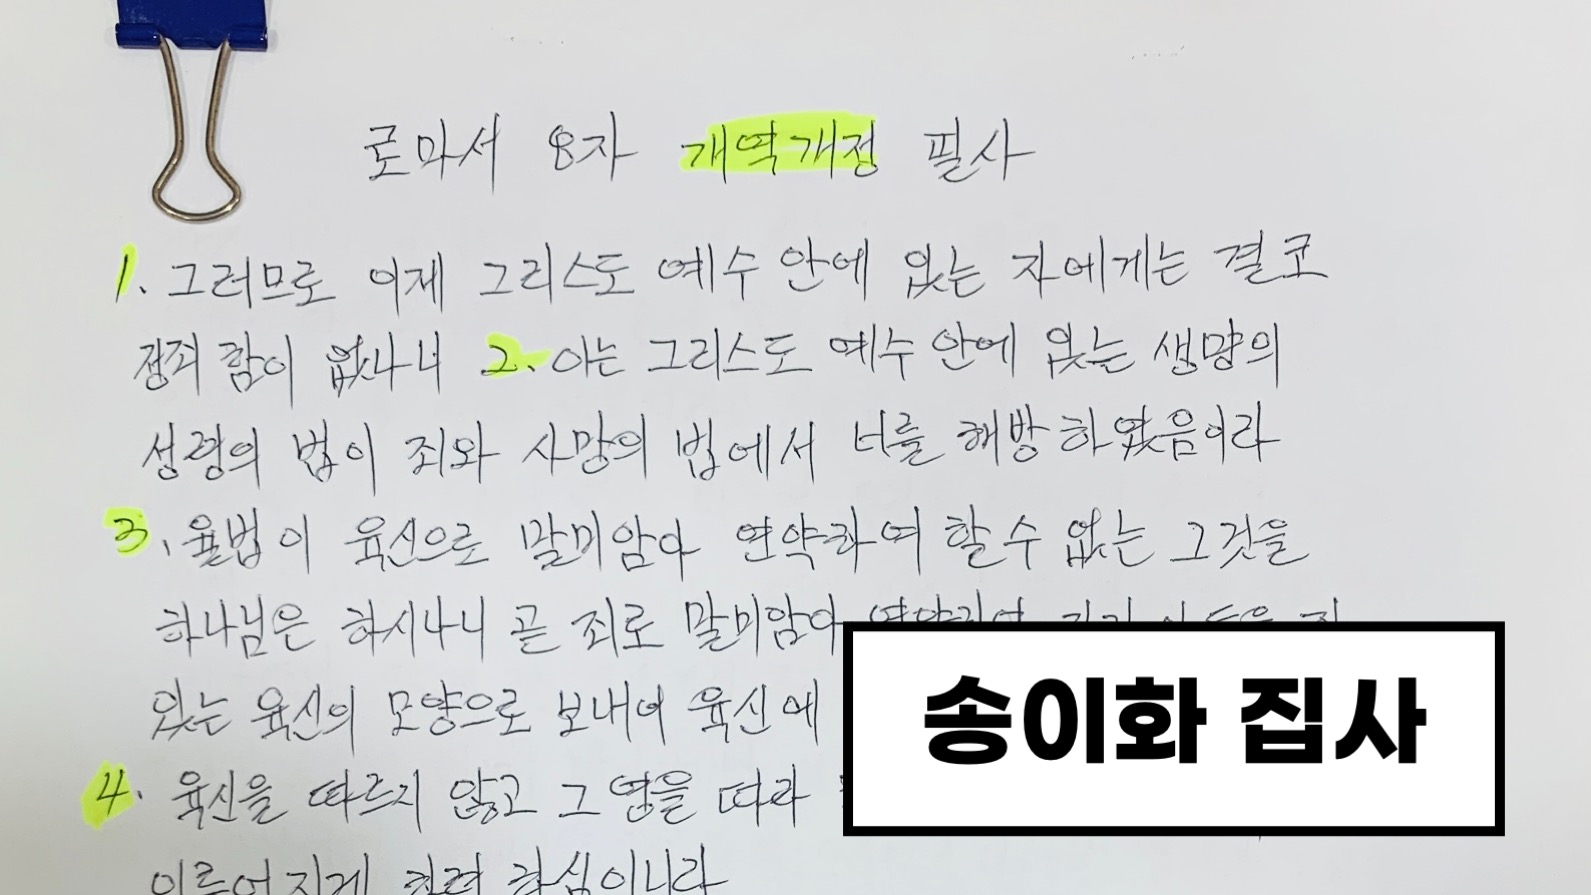 로마서 8장 개역개정 필사
1. 그러므로 이제 그리스도 예수 안에 있는 자에게는 결코
정죄 함이 없나니 2. 이는 그리스도 예수 안에 있는 생명의
성령의 법이 죄와 사망의 법에서 너를 해방 하였음이라
3. 율법이 육신으로 말미암아 연약하여 할 수 없는 그것을
하나님은 하시나니 곧 죄로 말미암아
있는 육신의 모양으로 보내어 육신에
4. 육신을 따르지 않고 그 영을 따라
이루어지게 하려 하심이니라
송이화 집사